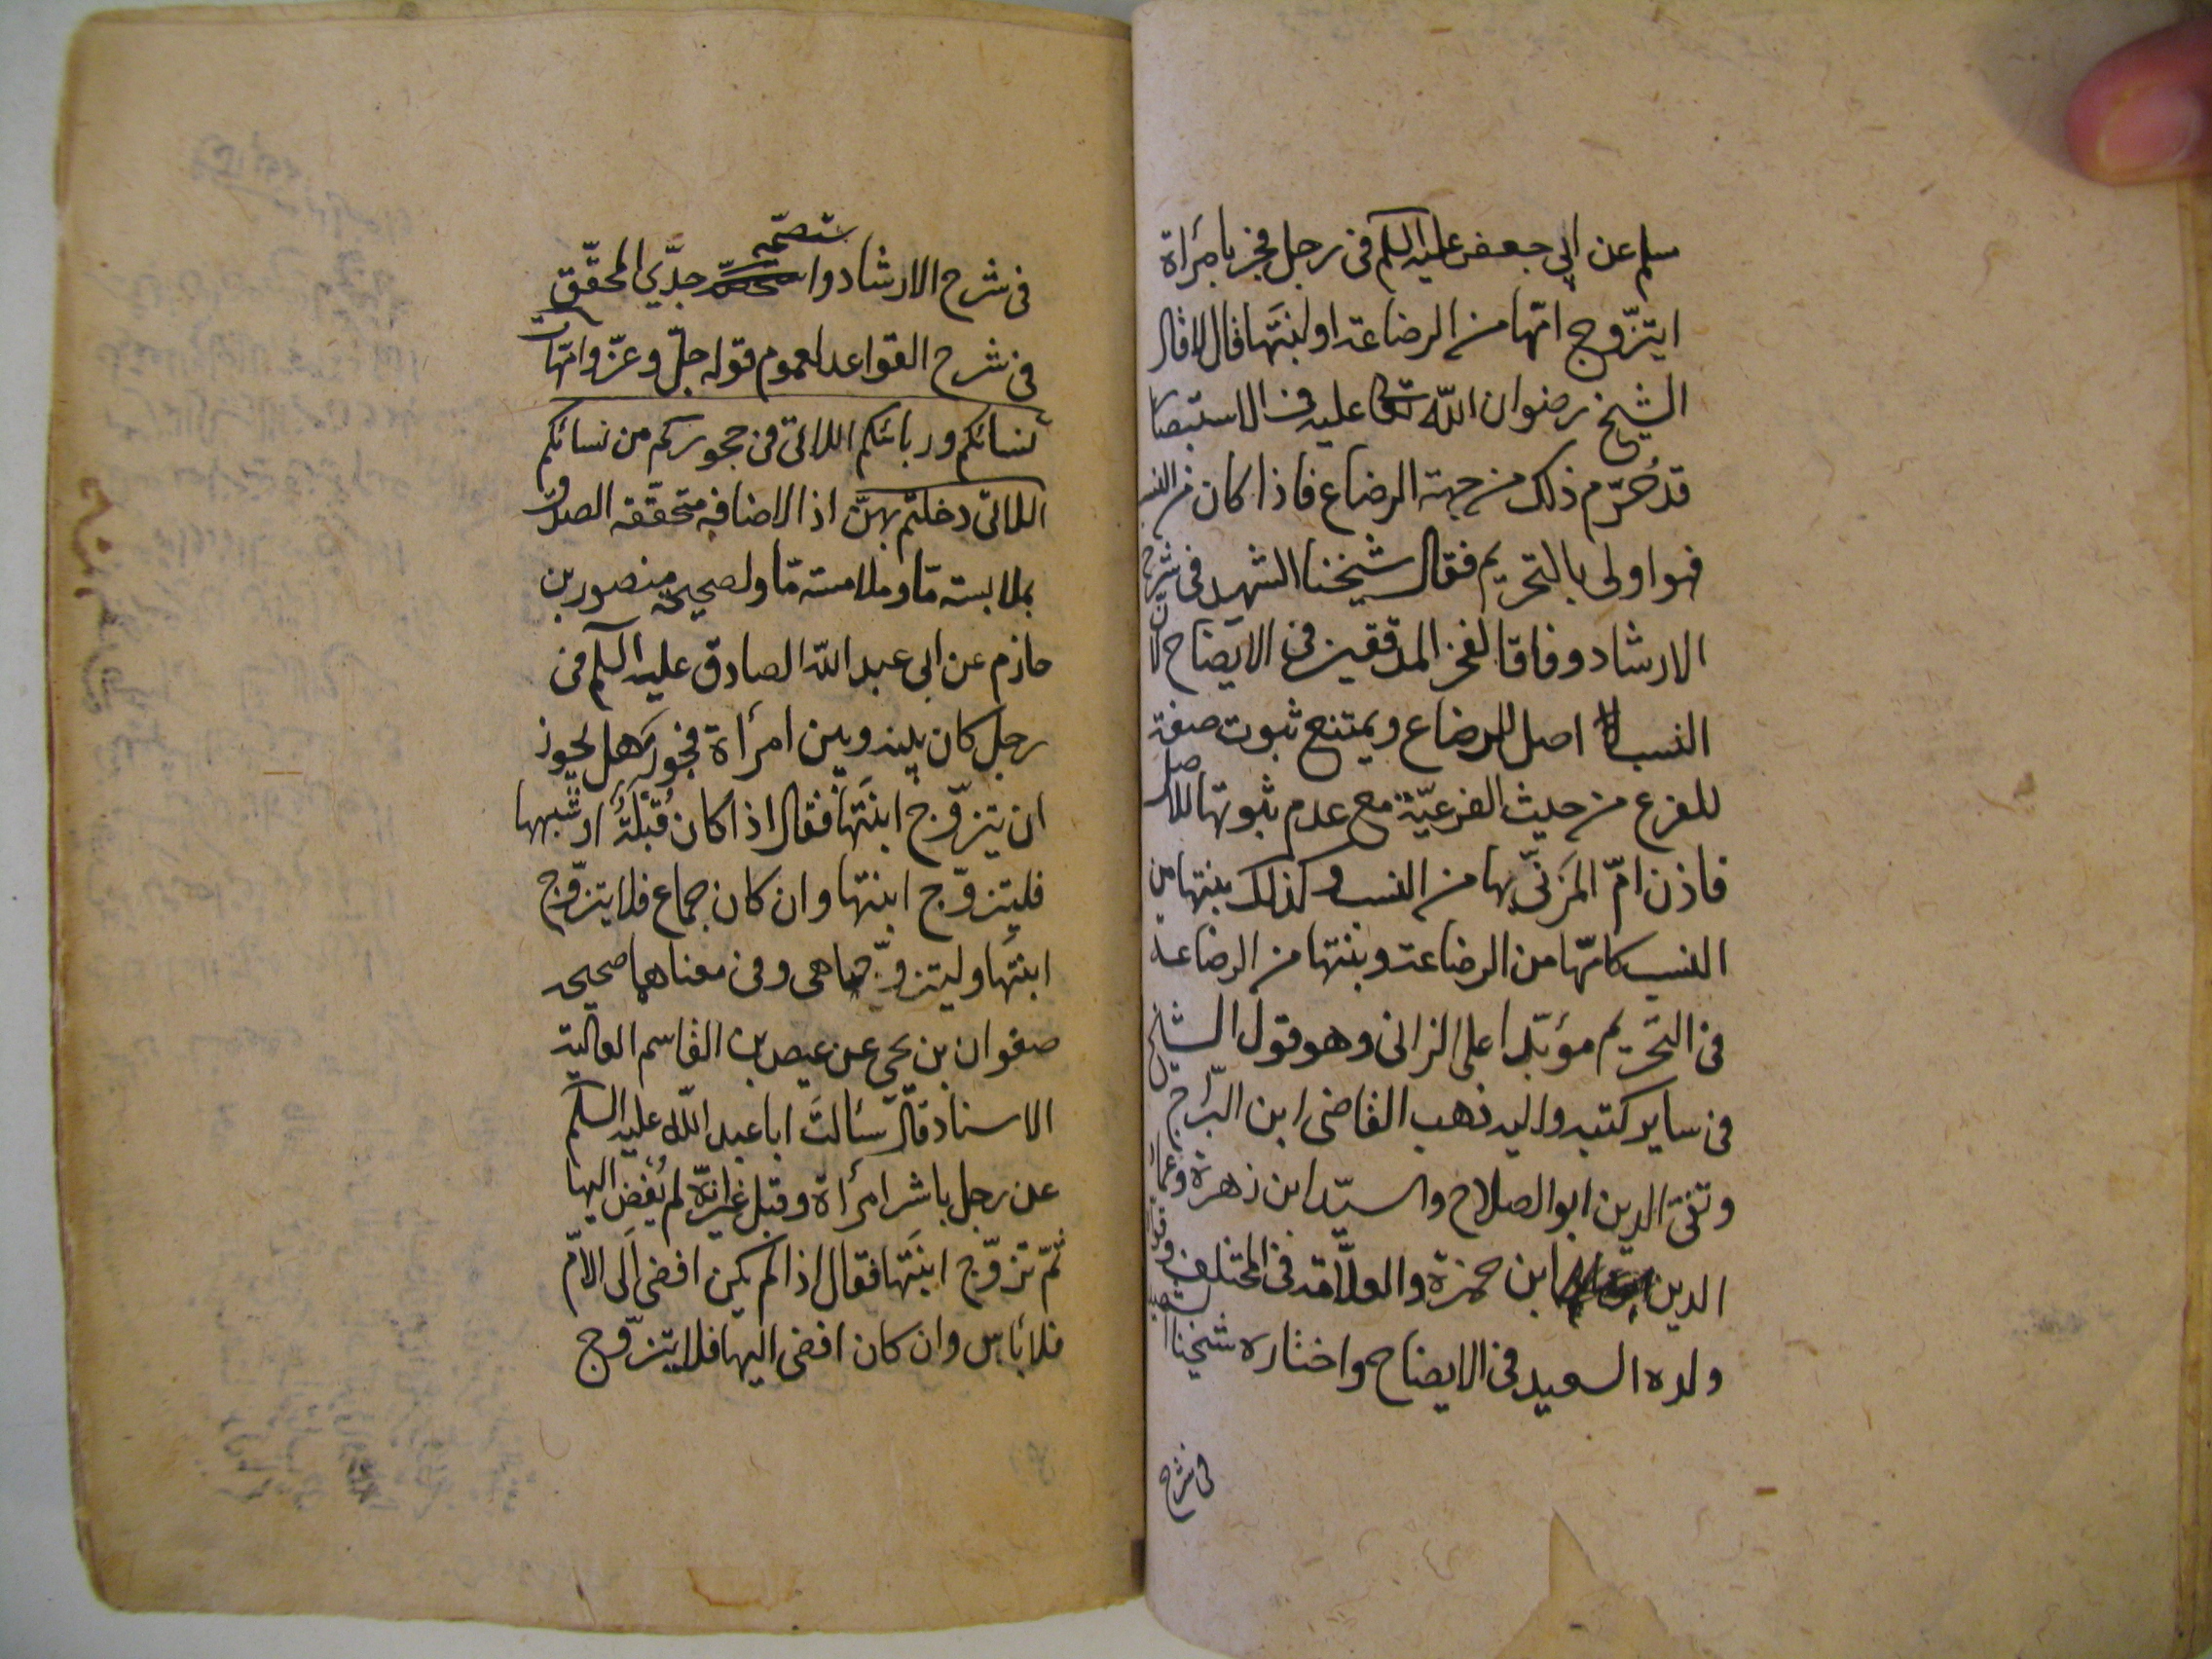 سلم عن ابي جعفر عليه السلم في رجل فجر بامرأة
ايتزوّج امّها من الرضاعة او ابنَتَها قال لا قال
الشيخ رضوان اللّه تعالى عليه في الاستبصار
قد حُرّم ذلك من جهة الرضاع فاذا كان من النسب
فهو اولى بالتحريم فقال شيخنا الشهيد في شرح
الارشاد وفاقا لفخر المدققين في الايضاح لانّ
النسب اصل للرضاع ويمتنع ثبوت صفة
للفرع من حيث الفرعيّة مع عدم ثبوتها للاصل
فاذن امّ المَزنيّ بها من النسب وكذلك بنتها من
النسب كامّها من الرضاعة وبنتها من الرضاعة
في التحريم مؤبّدا على الزاني وهو قول الشيخ
في ساير كتبه واليه ذهب القاضي ابن البرّاج
وتقي الدين ابو الصلاح والسيّد ابن زهرة وعماد
الدين ابن حمزة والعلّامة في المختلف و
ولده السعيد في الايضاح واختاره شيخنا الشهيد
في شرح
في شرح الارشاد وا ستصحّه جدّي المحقّق
في شرح القواعد لعموم قوله جلّ وعزّ وامّهات
نسائكم وربائبكم اللاتي في حجوركم من نسائكم
اللاتي دخلتم بهنّ اذ الاضافه متحقّقه الصدق
بملابسته مّا وملامسته مّا ولصحيحة منصور بن
حازم عن ابي عبد اللّه الصادق عليه السلم في
رجل كان بينه وبين امرأة فجور هل يجوز
ان يتزوّج ابنَتَها فقال اذا كان قُبْلَةً او شبهها
فليتزوّج ابنتها وان كان جماع فلا يتزوّج
ابنَتَها وليتزوّجها هي وفي معناها صحيحه
صفوان بن يحيى عن عيص بن القاسم العالية
الاسناد قال سئالتَ ابا عبد اللّه عليه السلم
عن رجل باشر امرأة وقبّل غير انّه لم يُفضِ اليها
ثمّ تزوّج ابنَتَها فقال اذا لم يكن افضى الى الامّ
فلا بأس وان كان افضى اليها فلا يتزوّج